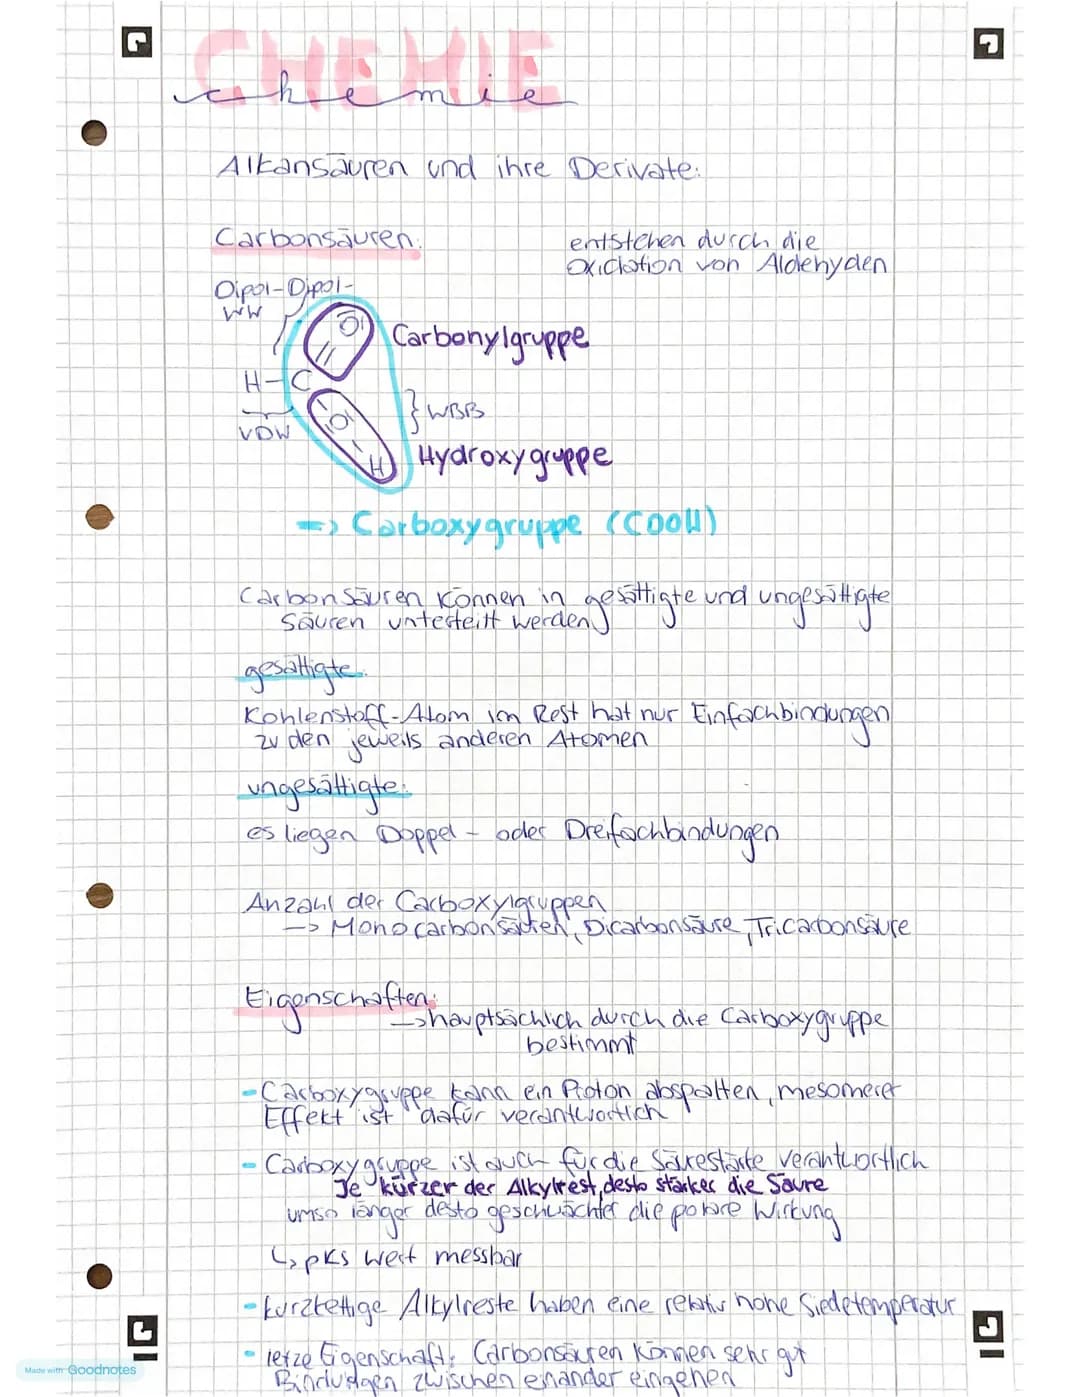 CHEMIE
chemie
Alkansäuren und ihre Derivate:
Carbonsäuren:
entstehen durch die
Oxidation von Aldehyden
Dipol-Dipol-
WW
O
Carbonylgruppe
H-C
O
} WBB
VDW
H
Hydroxygruppe
=> Carboxygruppe (COOH)
Carbonsäuren können in gesättigte und ungesättigte
Säuren unterteilt werden
gesättigte:
Kohlenstoff-Atom im Rest hat nur Einfachbindungen
zu den jeweils anderen Atomen
ungesättigte:
es liegen Doppel- oder Dreifachbindungen
Anzahl der Carboxylgruppen
-> Monocarbonsäuren, Dicarbonsäure, Tricarbonsäure
Eigenschaften:
-> hauptsächlich durch die Carboxygruppe
bestimmt
- Carboxygruppe kann ein Proton abspalten, mesomerer
Effekt ist dafür verantwortlich
- Carboxygruppe ist auch für die Säurestärke verantwortlich
Je kürzer der Alkylrest, desto stärker die Säure
umso länger desto geschwächter die polare Wirkung
↳ pKs wert messbar
- kurzkettige Alkylreste haben eine relativ hohe Siedetemperatur
- letze Eigenschaft: Carbonsäuren können sehr gut
Bindungen zwischen einander eingehen
Made with Goodnotes